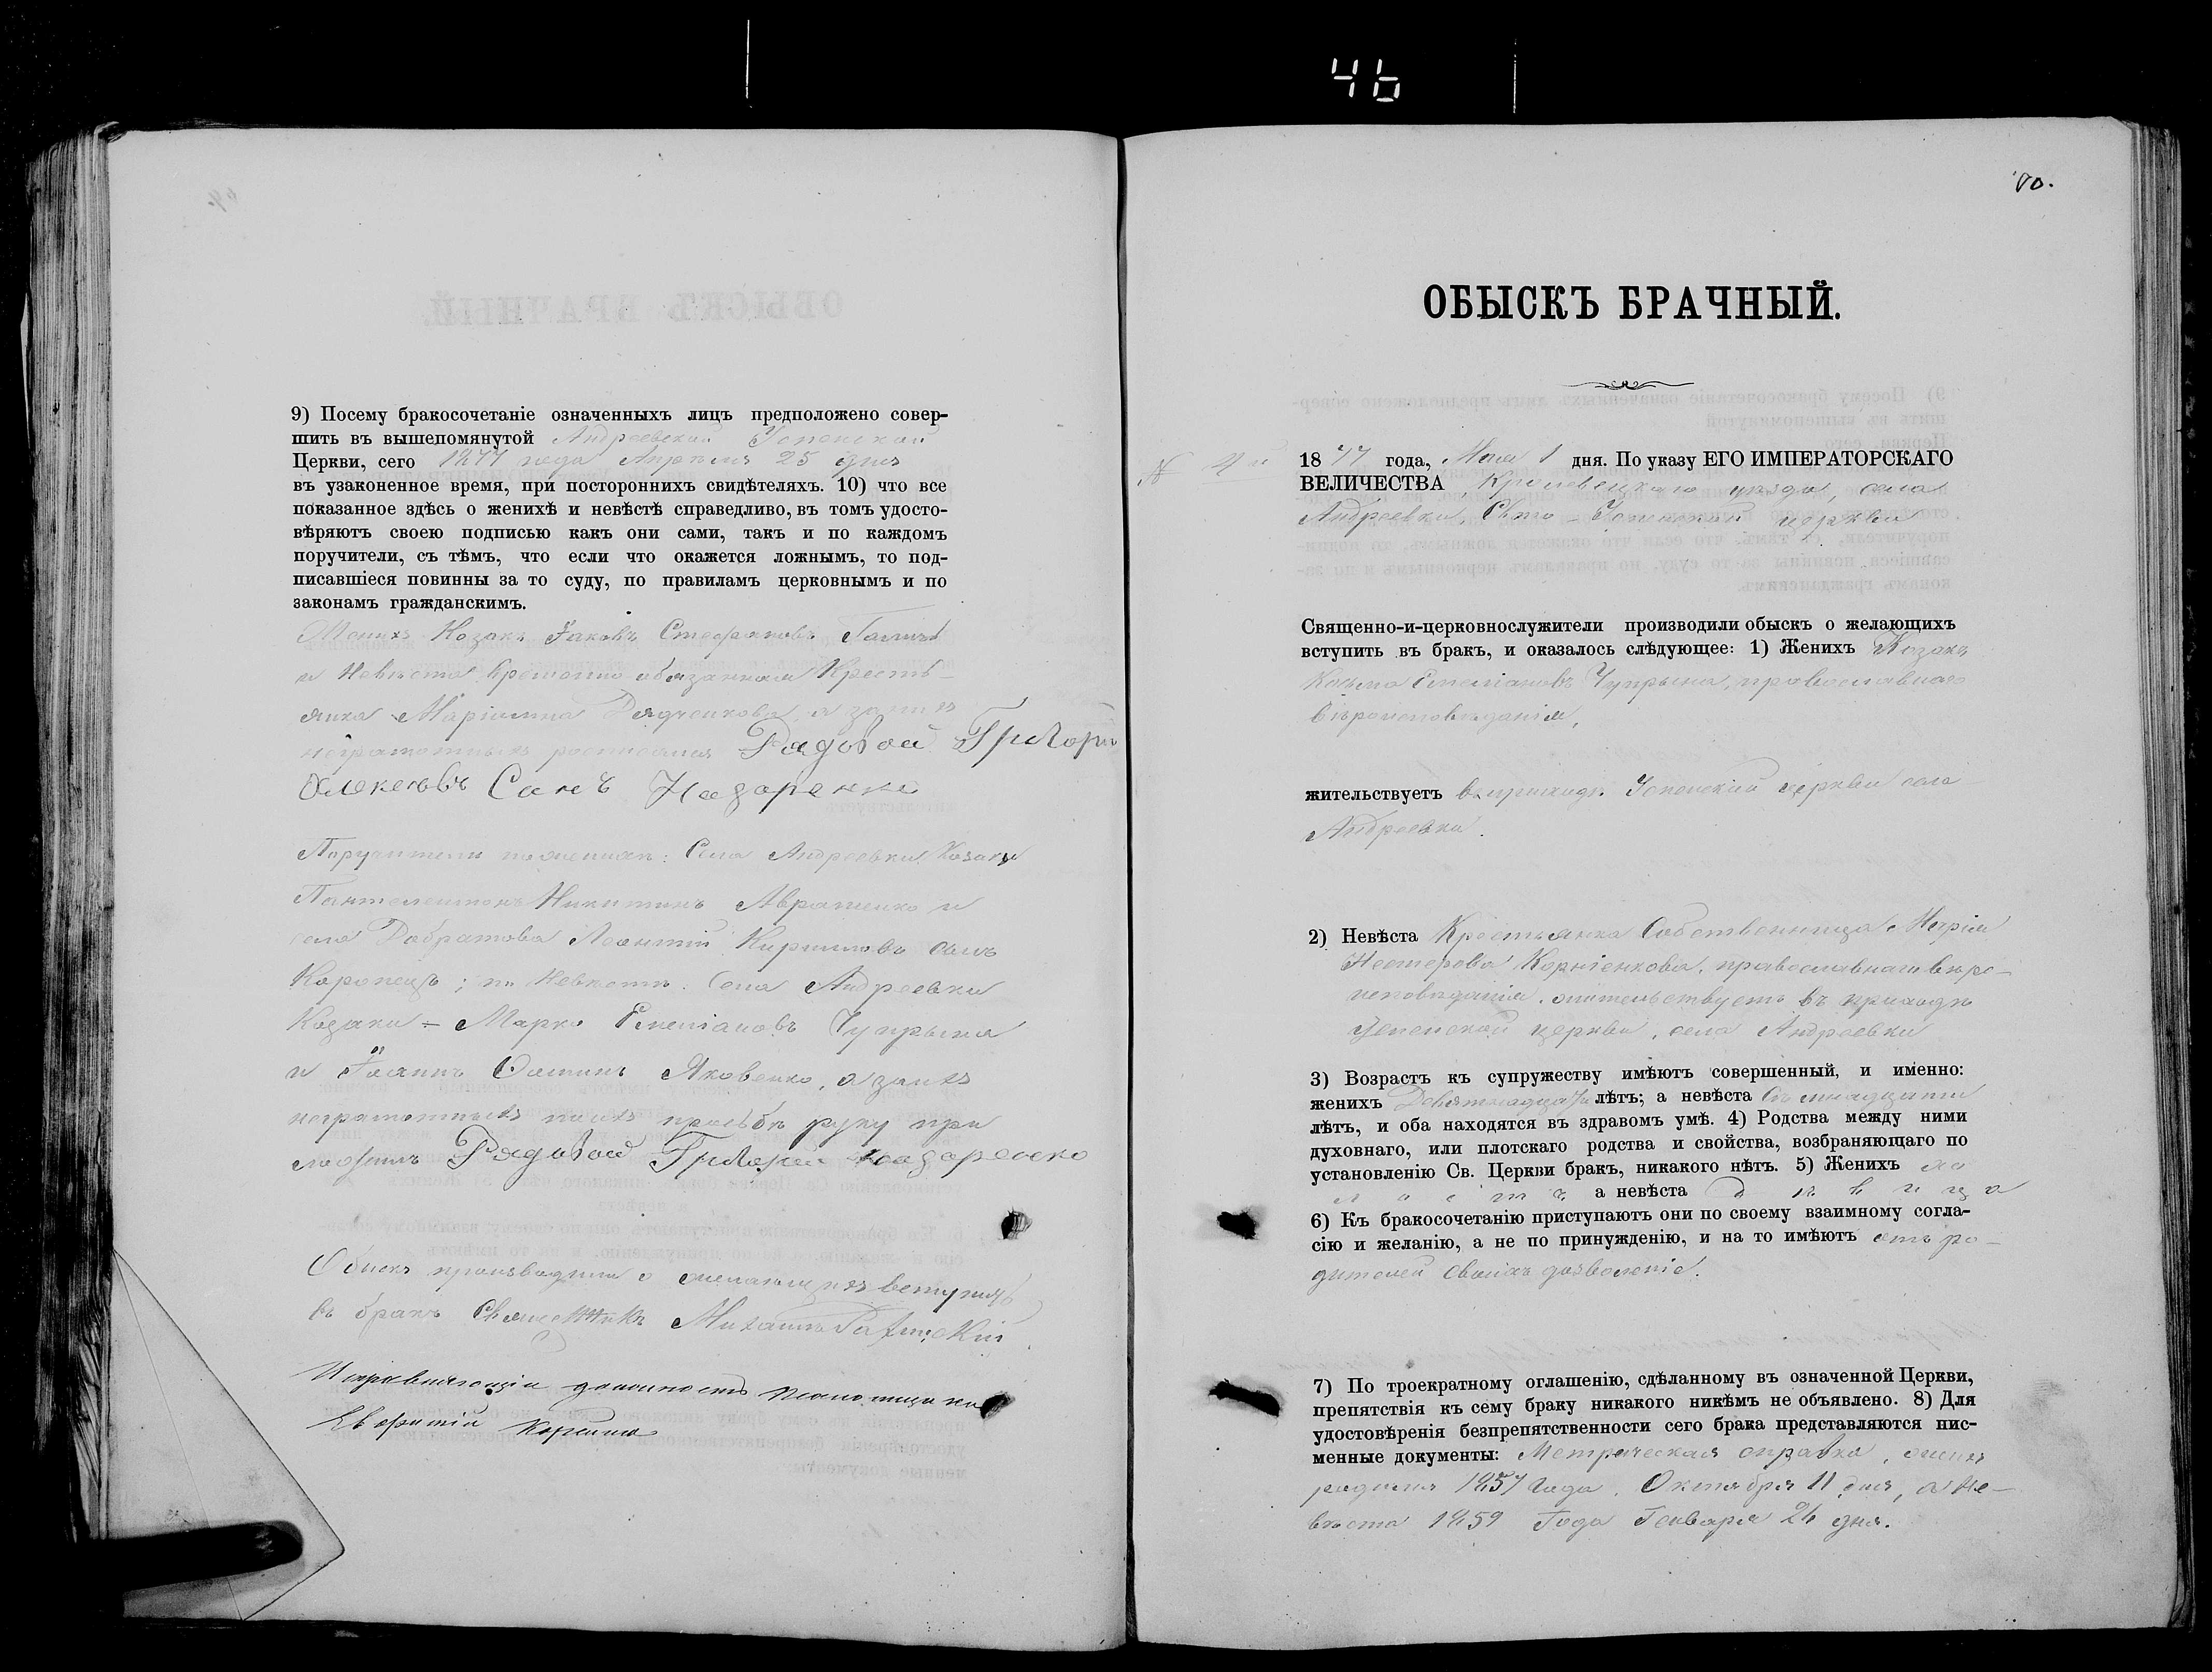 46
9) Посему бракосочетаніе означенныхъ лицъ предположено совер-
шить въ вышепомянутой Андреевской Успенской
Церкви, сего 1877 года Апрѣля 25 дня
въ узаконенное время, при постороннихъ свидѣтеляхъ. 10) что все
показанное здѣсь о женихѣ и невѣстѣ справедливо, въ томъ удосто-
вѣряютъ своею подписью какъ они сами, такъ и по каждомъ
поручители, съ тѣмъ, что если что окажется ложнымъ, то под-
писавшіеся повинны за то суду, по правиламъ церковнымъ и по
законамъ гражданскимъ.
Женихъ Козакъ Іаковъ Стефановъ
и Невѣста временно-обязанная Кресть-
янка Маріамна Дядченкова, а за нихъ
неграмотныхъ росписался Рядовой Григорій
Алексѣевъ Сынъ Назаренко
Поручители по женихѣ: Села Андреевки Козаки
Пантелеимонъ Никитинъ Авраменко и
села Добратова Леонтій Кирилловъ сынъ
Коропецъ; по Невѣстѣ: Села Андреевки
Козаки – Марко Емеліановъ Чупрына
и Іоаннъ Яковенко, а за нихъ
неграмотныхъ по ихъ прозьбѣ руку при
ложилъ Рядовой Григорій Назаренко
Обыскъ производили о желающихъ вступить
въ бракъ Священникъ Михаилъ
Исправляющій должность псаломщика
Евфимій
ОБЫСКЪ БРАЧНЫЙ.
№ 4й
1877 года, Мая 1 дня. По указу ЕГО ИМПЕРАТОРСКАГО
ВЕЛИЧЕСТВА, Кролевецкаго уѣзда, села
Андреевки, Свто-Успенской церкви
Священно-и-церковнослужители производили обыскъ о желающихъ
вступить въ бракъ, и оказалось слѣдующее: 1) Женихъ Козакъ
Козьма Емеліановъ Чупрына, православнаго
вѣроисповѣданія,
жительствуетъ въ приходѣ Успенской церкви села
Андреевки.
2) Невѣста Крестьянка Собственница Марія
Нестерова Корніенкова, православнаго вѣро-
исповѣданія, жительствуетъ въ приходѣ
Успенской церкви, села Андреевки
3) Возрастъ къ супружеству имѣютъ совершенный, и именно:
женихъ Девятнадцати лѣтъ; а невѣста Восмнадцати
лѣтъ, и оба находятся въ здравомъ умѣ. 4) Родства между ними
духовнаго, или плотскаго родства и свойства, возбраняющаго по
установленію Св. Церкви бракъ, никакого нѣтъ. 5) Женихъ хо
лостъ, а невѣста дѣвица
6) Къ бракосочетанію приступаютъ они по своему взаимному согла-
сію и желанію, а не по принужденію, и на то имѣютъ отъ ро-
дителей своихъ дозволеніе.
7) По троекратному оглашенію, сдѣланному въ означенной Церкви,
препятствія къ сему браку никакого никѣмъ не объявлено. 8) Для
удостовѣренія безпрепятственности сего брака представляются пис-
менные документы: Метрическая справка, женихъ
родился 1857 года, Октября 11 дня, а Не-
вѣста 1859 Года Генваря 26 дня.